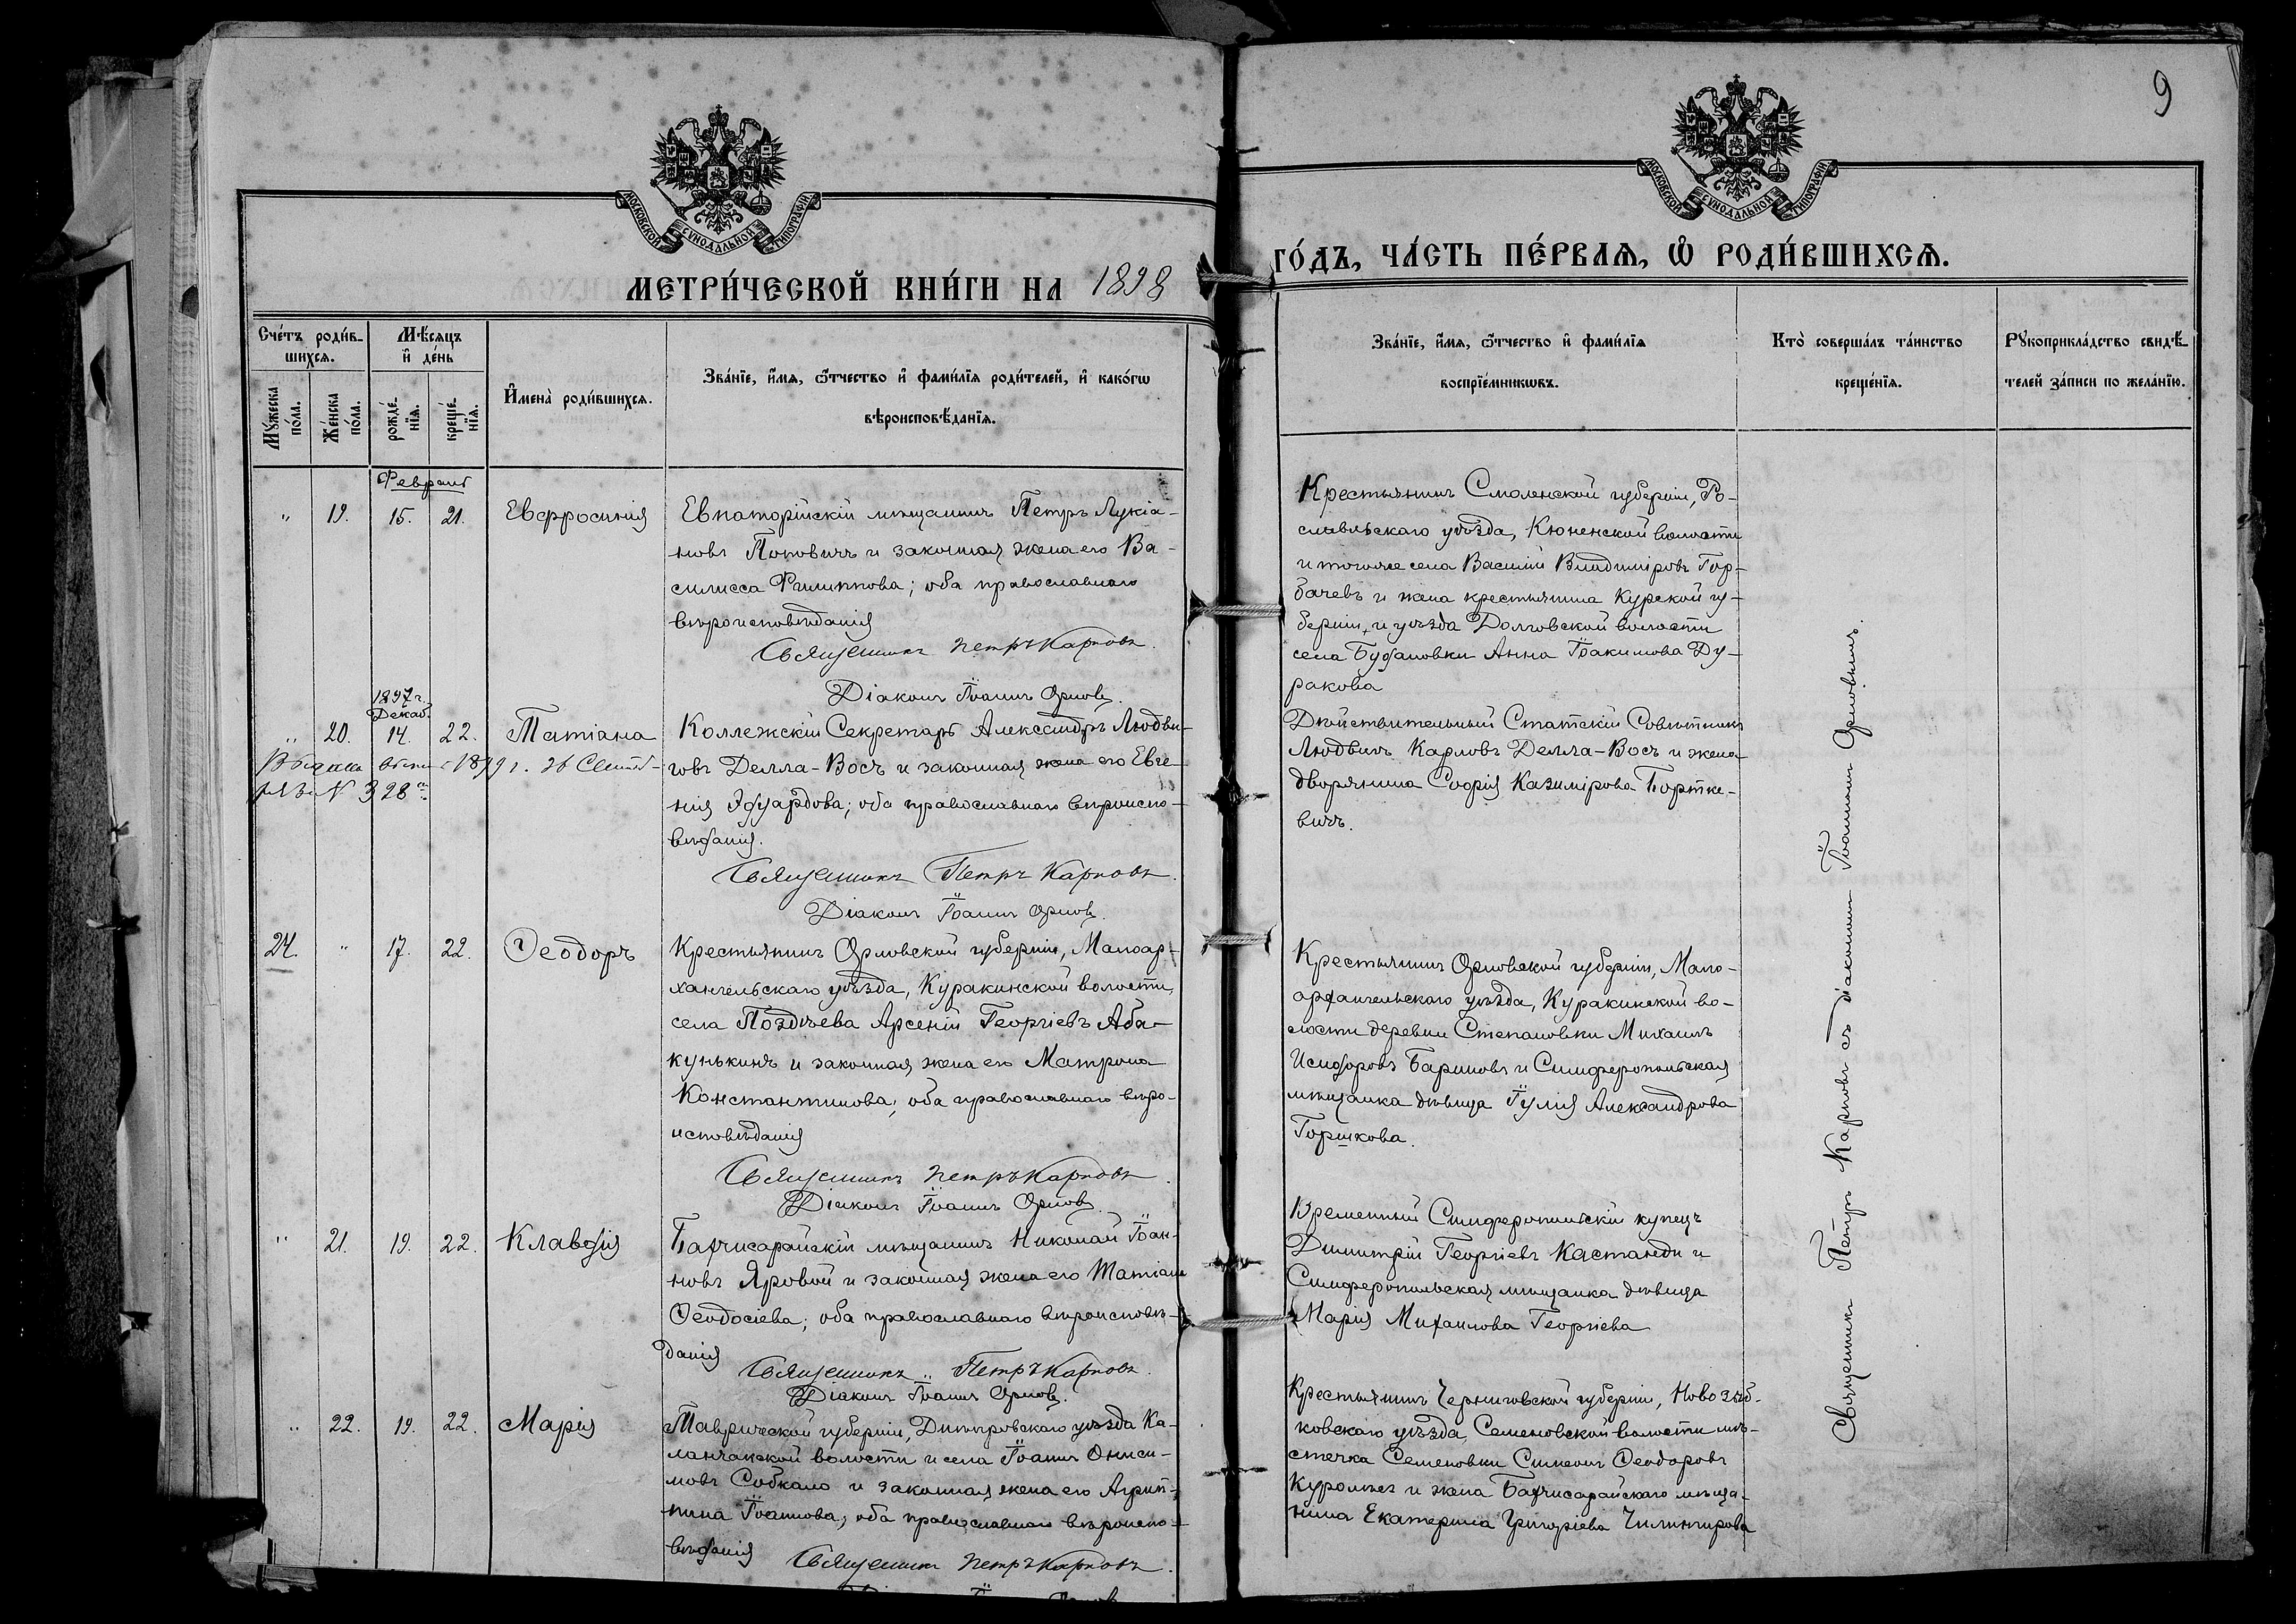 9
МОСКОВСКОЙ СУНОДАЛЬНОЙ ТИПОГРАФІИ
МОСКОВСКОЙ СУНОДАЛЬНОЙ ТИПОГРАФІИ
МЕТРИ́ЧЕСКОЙ КНИ́ГИ НА 1898
ГО́ДЪ, ЧА́СТЬ ПЕ́РВАѦ, Ѡ РОДИ́ВШИХСѦ.
Сче́тъ роди́в-
шихсѧ.
Мѣ́сѧцъ
и҆ де́нь
Мꙋ́жеска
по́ла.
Же́нска
по́ла.
рожде́-
нїѧ.
креще́-
нїѧ.
И҆мена̀ роди́вшихсѧ.
Зва́нїе, и҆́мѧ, ѻ҆́тчество и҆ фами́лїѧ роди́телей, и҆ како́гѡ
вѣроисповѣ́данїѧ.
Зва́нїе, и҆́мѧ, ѻ҆́тчество и҆ фами́лїѧ
воспрїе́мникѡвъ.
Кто̀ соверша́лъ та́инство
креще́нїѧ.
Рꙋкоприкла́дство свидѣ́-
телей за́писи по жела́нїю.
Февраль
" 19. 15. 21. Евфросинія
Евпаторійскій мѣщанинъ Петръ Лукіа-
новъ Поповичъ и законная жена его Ва-
силисса Филиппова; оба православнаго
вѣроисповѣданія
Священникъ Петръ Карповъ.
Діаконъ Іоаннъ Орловъ.
Крестьянинъ Смоленской губерніи, Ро-
славльскаго уѣзда, Кюненской волости
и тогоже села Василій Владиміровъ Гор-
бачевъ и жена крестьянина Курской гу-
берніи, и уѣзда Долговской волости
села Анна Іоакимова Ду-
ракова
1897 г.
Декаб.
" 20. 14. 22. Татіана
Выдана 1899 г. 26 Сентяб-
ря за № 328
Коллежскій Секретарь Александръ Людви-
говъ Делла-Восъ и законная жена его Евге-
нія Эдуардова; оба православнаго вѣроиспо-
вѣданія.
Священникъ Петръ Карповъ.
Діаконъ Іоаннъ Орловъ.
Дѣйствительный Статскій Совѣтникъ
Людвигъ Карловъ Делла-Восъ и жена
дворянина Софія Казимірова Бортке-
вичъ.
24. " 17. 22. Ѳеодоръ
Крестьянинъ Орловской губерніи, Малоар-
хангельскаго уѣзда, Куракинской волости,
села Поздѣева Арсеній Георгіевъ Аба-
кунькинъ и законная жена его Матрона
Константинова; оба православнаго вѣро-
исповѣданія
Священникъ Петръ Карповъ.
Діаконъ Іоаннъ Орловъ.
Крестьянинъ Орловской губерніи, Мало-
архангельскаго уѣзда, Куракинской во-
лости деревни Степановки Михаилъ
Исидоровъ Бариновъ и Симферопольская
мѣщанка дѣвица Іулія Александрова
Горшкова.
" 21. 19. 22. Клавдія
Бахчисарайскій мѣщанинъ Николай Іоан-
новъ Яровой и законная жена его Татіана
Ѳеодосіева; оба православнаго вѣроисповѣ-
данія
Священникъ Петръ Карповъ.
Діаконъ Іоаннъ Орловъ.
Временный Симферопольскій купецъ
Димитрій Георгіевъ Кастанди и
Симферопольская мѣщанка дѣвица
Марія Михаилова Георгіева
" 22. 19. 22. Марія
Таврической губерніи, Днѣпровскаго уѣзда Ка-
ланчакской волости и села Іоаннъ Ониси-
мовъ Собкало и законная жена его Агрип-
пина Іоаннова; оба православнаго вѣроиспо-
вѣданія
Священникъ Петръ Карповъ.
Крестьянинъ Черниговской губерніи, Новозыб-
ковскаго уѣзда, Семеновской волости мѣ-
стечка Семеновки Симеонъ Ѳеодоровъ
и жена Бахчисарайскаго мѣща-
нина Екатерина Григоріева Чилингирова
Священникъ Петръ Карповъ съ діакономъ Іоанномъ Орловымъ.